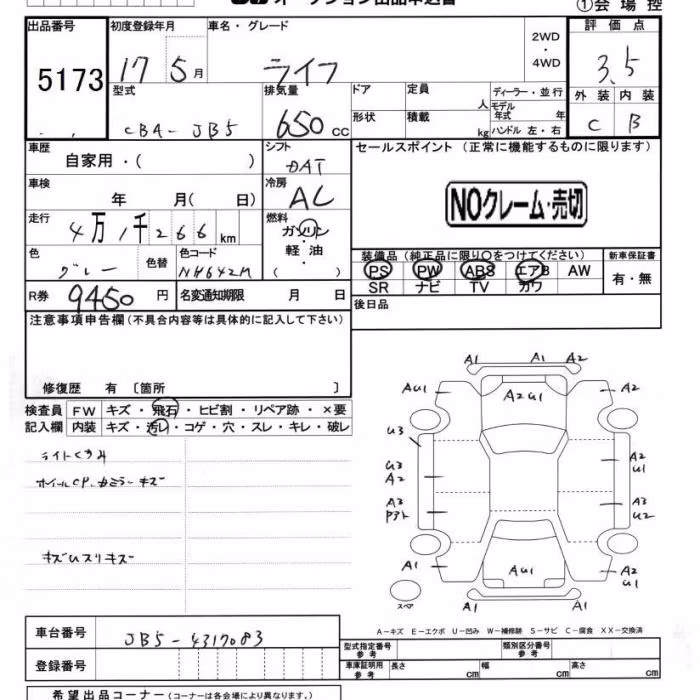 ①会場控
出品番号
5173
初度登録年月
17 5月
車名・グレード
ライフ
2WD
・
4WD
評価点
3.5
外装 内装
C B
型式
CBA- JB5
排気量
650 cc
ドア
形状
定員
人
積載
kg
ディーラー・並行
モデル年式 年
ハンドル 左・右
車歴
自家用・( )
シフト
DAT
セールスポイント (正常に機能するものに限ります)
NOクレーム・売切
車検
年 月( 日)
冷房
AC
走行
4万1千266km
燃料
ガソリン
軽油
( )
色
グレー
色替
色コード
NH642M
装備品 (純正品に限り〇をつけてください)
新車保証書
PS PW ABS エアB AW
SR ナビ TV カワ
有・無
R券 9450円
名変通知期限 月 日
後日品
注意事項申告欄(不具合内容等は具体的に記入して下さい)
修復歴 有 〔箇所 〕
検査員
記入欄
FW キズ・飛石・ヒビ割・リペア跡・×要
内装 キズ・汚レ・コゲ・穴・スレ・キレ・破レ
ライトくもり
ホイールCP.カミラーキズ
A1 A1 A2
AU1 A2U1 A2
U3
U3
A2
A2
U1
A3
P3ト
A3
U2
A1 AU1 A2
U1
A1 A1
スペア
A-キズ E-エクボ U-凹み W-補修跡 S-サビ C-腐食 XX-交換済
車台番号
JB5-4317083
登録番号
型式指定番号
参考
類別区分番号
参考
車庫証明用
参考
長さ cm
幅 cm
高さ cm
希望出品コーナー(コーナーは各会場により異なります。)